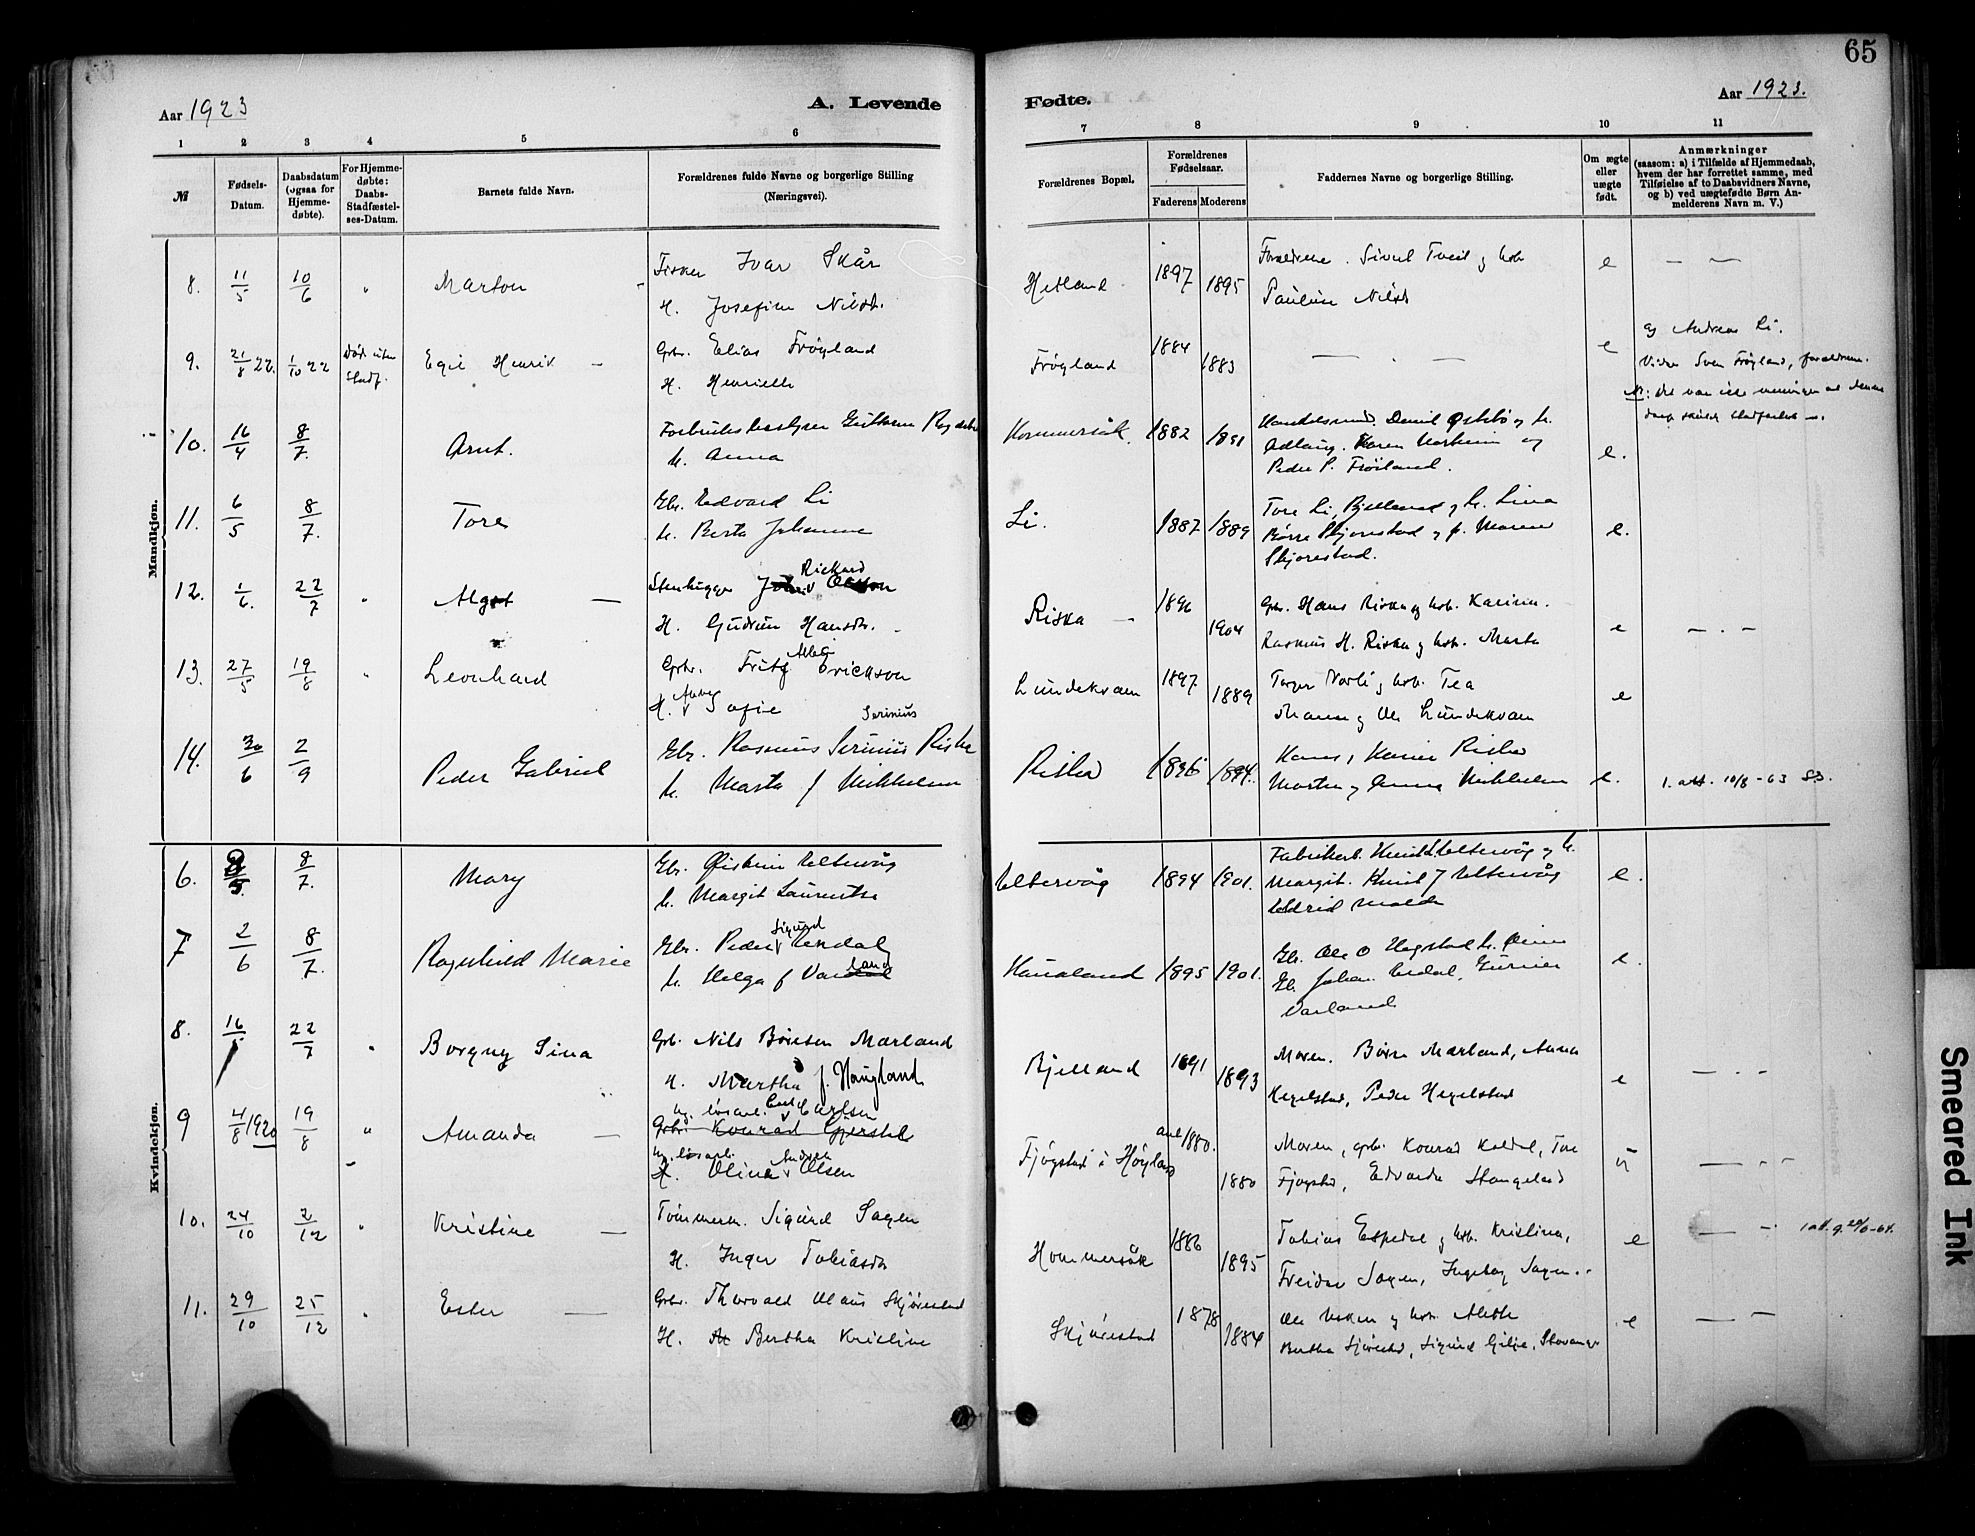 65
Aar 1923
A. Levende
Fødte.
Aar 1923.
1 2 3 4 5 6 7 8 9 10 11
№
Fødsels-Datum.
Daabsdatum (ogsaa for Hjemme-døbte).
For Hjemme-døbte: Daabs-Stadfæstel-ses-Datum.
Barnets fulde Navn.
Forældrenes fulde Navne og borgerlige Stilling (Næringsvei).
Forældrenes Bopæl.
Forældrenes Fødselsaar.
Faderens Moderens
Faddernes Navne og borgerlige Stilling.
Om ægte eller uægte født.
Anmærkninger
(saasom: a) i Tilfælde af Hjemmedaab,
hvem der har forrettet samme, med
Tilføielse af to Daabsvidners Navne,
og b) ved uægtefødte Børn An-
melderens Navn m. V.)
Mandkjøn.
8. 11/5 10/6 " Marton Fisker Ivar Skår
H. Josefine Nilsdt.
Hetland 1897 1895 Forældrene. Sivert Tveit og hst.
Pauline Nilsdt e — —
9. 21/8 22. 1/10 22 Død uten Stadf. Egil Henrik — Grbr. Elias Frøyland
H. Henriette
Frøyland 1884 1883 — . — e
Andreas Li.
Vidner Sven Frøyland, forældrene.
10. 16/4 8/7. Arnt.
h. Anna
Hommersåk. 1882 1891 Daniel Østebø og h.
Karen
Peder P. Frøiland. e.
11. 6/5 8/7. Tore Gbr. Edvard Li
h. Berta Johanne
Li. 1887 1889 Tore Li, Bjelland og h. Lina
Børre Skjørestad og f. Maren
Skjørestad. e.
12. 1/6. 22/7 " Algot — Stenhugger Rickard
H. Gudrun Hansdt. -
Riska - 1896 1904 Gbr. Hans Riska og hst. Karine.
Rasmus H. Riska og hst. Marta e — . —
13. 27/5 19/8 " Leonhard Grbr. Fritz Erickson
H. Sofie
Lundekvam 1897 1889 Torger Norli og hst. Tea
og Ole Lundekvam e
14. 30/6 2/9 Peder Gabriel Gbr. Rasmus Serinius Riska
Serinius
h. Marta f Mikkelsen
Riska 1896 1894. Hans, Karine Riska
Morten og Anna Mikkelsen e. 1. att. 10/8-63 SB.
Kvindekjøn.
6. 8/7. Mary Gbr. Øistein Ultervåg
h. Margit Lauritse
Ultervåg 1894 1901. Fabrikarb. Knut Ultervåg og h.
Margit. Knut J Ultervåg
Malde e.
7 2/6 8/7. Ragnhild Marie Gbr. Peder Sigurd Undal
h. Helga f Varland
Haualand 1895 1901. Gb. Ole O Hogstad h.
Gb. Johan
Varland e.
8. 16 22/7 " Borgny Sina Grb. Nils Børresen Mærland
H. Martha f. Haugland
Bjelland 1891 1893 Moren. Børre Mærland, Anna
Hegelstad, Peder Hegelstad e — . -
9 4/8 1920 19/8 " Amanda — Ug. løsarb. Carl Carlsen
Grbr. Konrad Gjerstel
Ug. løsarb.
H. Olina Olsen
Fjøgstad i Høyland 1880. 1880 Moren, grbr. Konrad Kaldal, Tore
Fjøgstad, Edvarda Stangeland u — - -
10. 24/10 2/12 " Kristine — Tømmerm. Sigurd Sagen
H. Inger Tobiasdt
Hommersåk 1886 1895 Tobias Espedal og hst. Kristina,
Freidar Sagen, Ingeborg Sagen. e — -
11. 29/10 25/12 " Ester — Grbr. Thorvald Olaus Skjørestad
H. Bertha Kristine
Skjørestad 1878 1884 Ole og hst. Alette
Bertha Skjørestad, Sigurd Gilje, Stavanger e — —
Smeared Ink